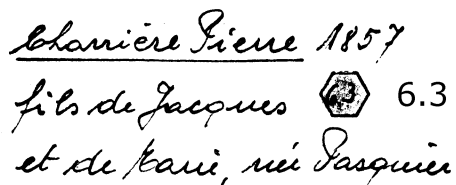 Charrière Pierre 1857
fils de Jacques 6.3
et de Marie, née Pasquier